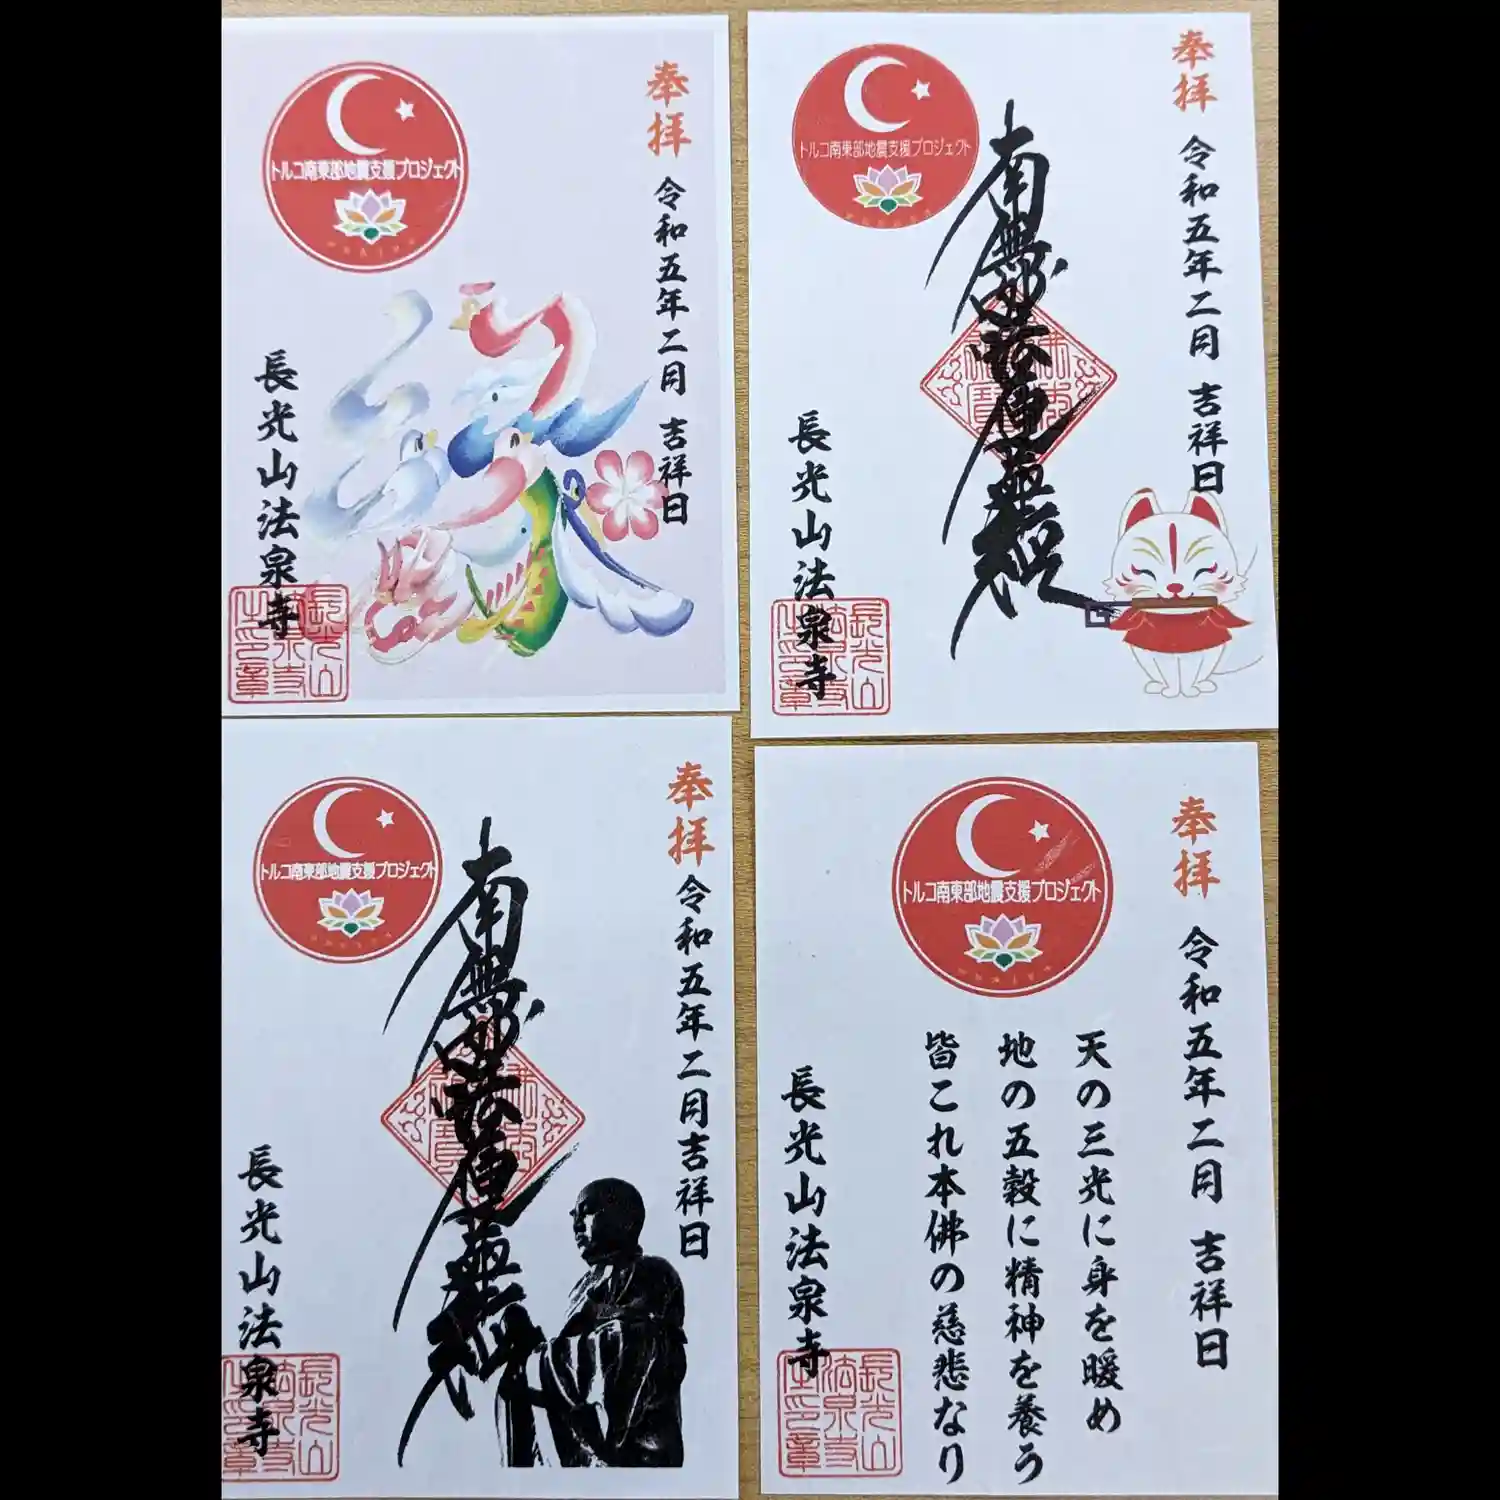 奉拝
令和五年二月 吉祥日
トルコ南東部地震支援プロジェクト
長光山法泉寺
長光山
法泉寺
之印章
奉拝
令和五年二月 吉祥日
トルコ南東部地震支援プロジェクト
南無妙法蓮華経
長光山法泉寺
長光山
法泉寺
之印章
奉拝
令和五年二月吉祥日
トルコ南東部地震支援プロジェクト
南無妙法蓮華経
長光山法泉寺
長光山
法泉寺
之印章
奉拝
令和五年二月 吉祥日
トルコ南東部地震支援プロジェクト
天の三光に身を暖め
地の五穀に精神を養う
皆これ本佛の慈悲なり
長光山法泉寺
長光山
法泉寺
之印章